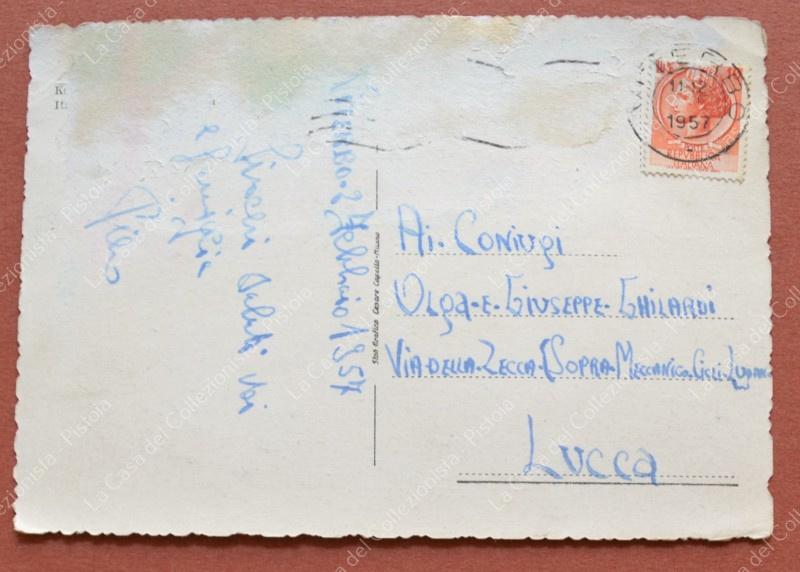 Viterbo - 2 Febbraio 1957
Sinceri saluti voi
e famiglia
Piero
Stab. Grafico Cesare Capello - Milano
VITERBO
1957
REPUBBLICA
ITALIANA
Ai. Coniugi
Olga - e - Giuseppe - Ghilardi
Via Della - Zecca - (Sopra - Meccanico - Cicli
Lucca
La Casa del Collezionista - Pistoia